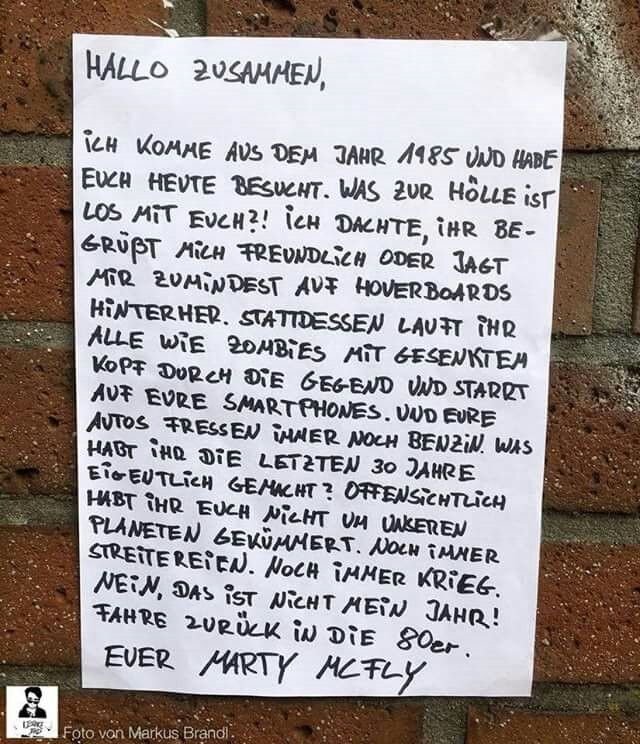 HALLO ZUSAMMEN,
ICH KOMME AUS DEM JAHR 1985 UND HABE
EUCH HEUTE BESUCHT. WAS ZUR HÖLLE IST
LOS MIT EUCH?! ICH DACHTE, IHR BE-
GRÜßT MICH FREUNDLICH ODER JAGT
MIR ZUMINDEST AUF HOVERBOARDS
HINTERHER. STATTDESSEN LAUFT IHR
ALLE WIE ZOMBIES MIT GESENKTEM
KOPF DURCH DIE GEGEND UND STARRT
AUF EURE SMARTPHONES. UND EURE
AUTOS FRESSEN IMMER NOCH BENZIN. WAS
HABT IHR DIE LETZTEN 30 JAHRE
EIGENTLICH GEMACHT? OFFENSICHTLICH
HABT IHR EUCH NICHT UM UNSEREN
PLANETEN GEKÜMMERT. NOCH IMMER
STREITEREIEN. NOCH IMMER KRIEG.
NEIN, DAS IST NICHT MEIN JAHR!
FAHRE ZURÜCK IN DIE 80er.
EUER MARTY MCFLY
Foto von Markus Brandl.